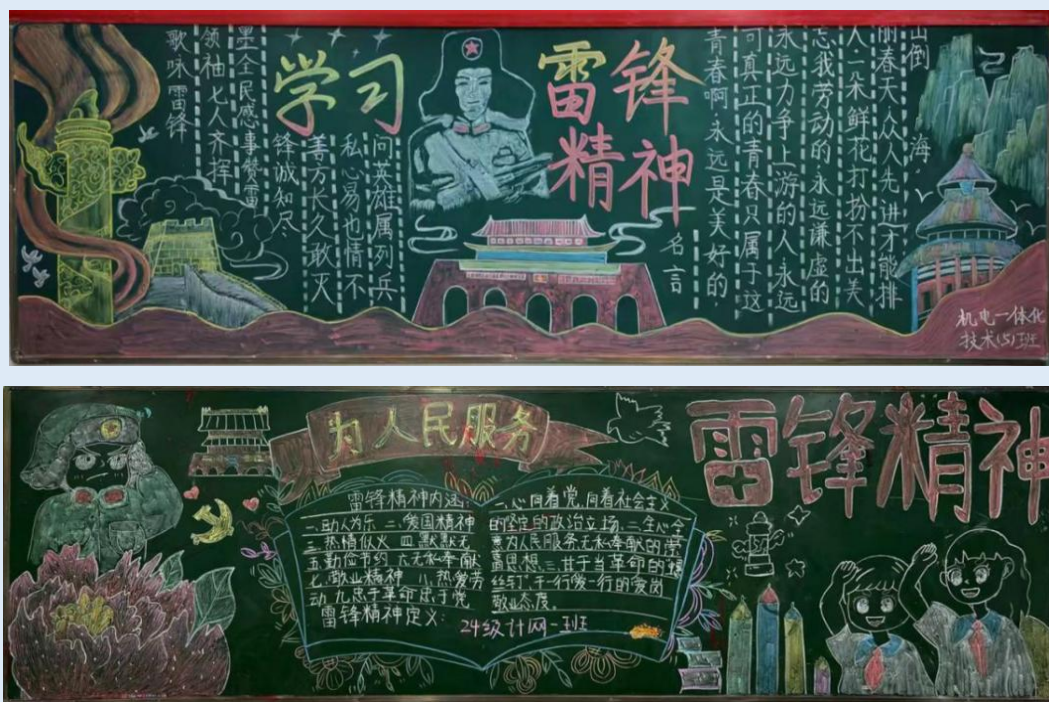 歌咏雷锋
领袖七人齐挥
墨全民感事赞雷
锋诚知尽
善方长久敢灭
私心易也情不
问英雄属列兵
学习
雷锋
精神
名言
青春啊,永远是美好的,
可真正的青春只属于这
永远力争上游的人,永远
忘我劳动的,永远谦虚的
人.一朵鲜花打扮不出美
丽春天,众人先进才能排
山倒海.
机电一体化
技术(5)班
为人民服务
雷锋精神
雷锋精神内涵
一、动人为乐 二、爱国精神
三、热情似火 四、默默无
五、勤俭节约 六、无私奉献
七、敬业精神 八、热爱劳
动 九、忠于革命忠于党
雷锋精神定义:
一、心向着党,向着社会主义
的坚定的政治立场.二、全心全
意为人民服务无私奉献的崇
高思想.三、甘于当革命的螺
丝钉,干一行爱一行的爱岗
敬业态度.
24级计网一班